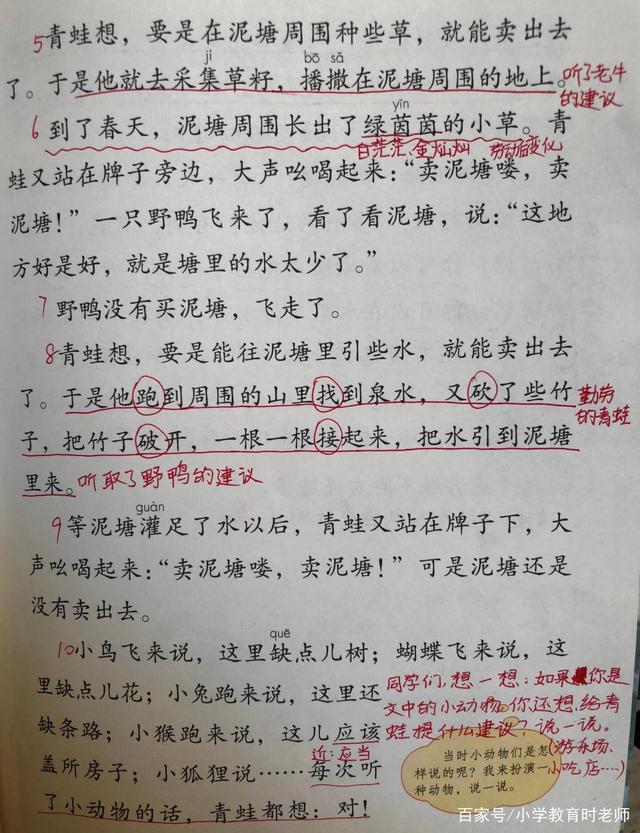 5青蛙想，要是在泥塘周围种些草，就能卖出去
jí bō sǎ
了。于是他就去采集草籽，播撒在泥塘周围的地上。听了老牛
的建议
yīn
6到了春天，泥塘周围长出了绿茵茵的小草。青
白茫茫、金灿灿 劳动后变化
蛙又站在牌子旁边，大声吆喝起来：“卖泥塘喽，卖
泥塘！”一只野鸭飞来了，看了看泥塘，说：“这地
方好是好，就是塘里的水太少了。”
7野鸭没有买泥塘，飞走了。
8青蛙想，要是能往泥塘里引些水，就能卖出去
了。于是他跑到周围的山里找到泉水，又砍了些竹
勤劳
的青蛙
子，把竹子破开，一根一根接起来，把水引到泥塘
里来。听取了野鸭的建议
guàn
9等泥塘灌足了水以后，青蛙又站在牌子下，大
声吆喝起来：“卖泥塘喽，卖泥塘！”可是泥塘还是
没有卖出去。
quē
10小鸟飞来说，这里缺点儿树；蝴蝶飞来说，这
里缺点儿花；小兔跑来说，这里还
缺条路；小猴跑来说，这儿应该
近：应当
盖所房子；小狐狸说……每次听
了小动物的话，青蛙都想：对！
同学们，想一想：如果你是
文中的小动物，你还想给青
蛙提什么建议？说一说。
（游乐场、
小吃店……）
当时小动物们是怎
样说的呢？我来扮演一
种动物，说一说。
百家号/小学教育时老师